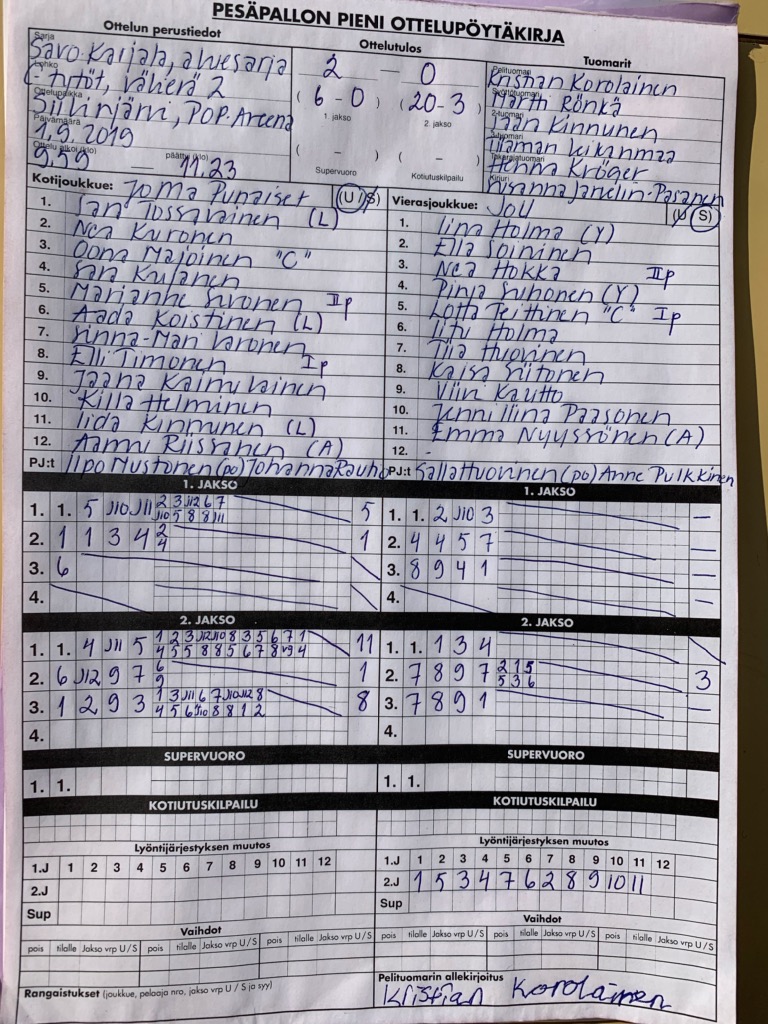 PESÄPALLON PIENI OTTELUPÖYTÄKIRJA
Ottelun perustiedot
Ottelutulos
Tuomarit
Sarja
Savo-Karjala, aluesarja
Lohko
C-tytöt, välierä 2
Ottelupaikka
Siilinjärvi, POP-Areena
Päivämäärä
1.9.2019
Ottelu alkoi (klo)
9.59 — 11.23
päättyi (klo)
2 — 0
(6 - 0) (20 - 3)
1. jakso 2. jakso
( - ) ( - )
Supervuoro Kotiutuskilpailu
Pelituomari
Kristian Korolainen
Syöttötuomari
Martti Rönkä
2-tuomari
Kinnunen
3-tuomari
Takarajatuomari
Henna Kröger
Kirjuri
Susanna Janelin-Pasanen
Kotijoukkue: JoMa Punaiset (U/S)
1. Sani Tossavainen (L)
2. Nea Kuronen
3. Oona Majoinen "C"
4. Sara Kulanen
5. Marianne Sivonen IIp
6. Aada Koistinen (L)
7. Sinna-Mari Varonen
8. Elli Timonen Ip
9. Jaana Kaimulainen
10. Killa Helminen
11. Iida Kinnunen (L)
12. Aamu Riissanen (A)
PJ:t Ilpo Mustonen (po) Johanna Rauho
Vierasjoukkue: JoU (U S)
1. Iina Holma (Y)
2. Ella Soininen
3. Nea Hokka IIp
4. Pinja Suhonen (Y)
5. Lotta Teittinen "C" Ip
6. Iitu Holma
7. Tiia Huovinen
8. Kaisa Siitonen
9. Viivi Kautto
10. Jenni Iina Paasonen
11. Emma Nyyssönen (A)
12. -
PJ:t Salla Huovinen (po) Anne Pulkkinen
1. JAKSO
1. 1. 5 J10 J11 2 3 J12 6 7 5
J10 5 8 8 J11
2. 1 1 3 4 2 1
4
3. 6
4.
1. JAKSO
1. 1. 2 J10 3 —
2. 4 4 5 7 —
3. 8 9 4 1 —
4. —
2. JAKSO
1. 1. 4 J11 5 1 2 3 J12 J10 8 3 5 6 7 1 11
4 5 5 8 8 5 6 7 8 J9 4
2. 6 J12 9 7 6 1
9
3. 1 2 9 3 1 3 J11 6 7 J10 J12 8 8
4 5 6 J10 8 8 1 2
4.
2. JAKSO
1. 1. 1 3 4
2. 7 8 9 7 2 1 5 3
5 3 6
3. 7 8 9 1 —
4.
SUPERVUORO
1. 1.
SUPERVUORO
1. 1.
KOTIUTUSKILPAILU
KOTIUTUSKILPAILU
Lyöntijärjestyksen muutos
1.J 1 2 3 4 5 6 7 8 9 10 11 12
2.J
Sup
Lyöntijärjestyksen muutos
1.J 1 2 3 4 5 6 7 8 9 10 11 12
2.J 1 5 3 4 7 6 2 8 9 10 11
Sup
Vaihdot
pois tilalle Jakso vrp U/S pois tilalle Jakso vrp U/S pois tilalle Jakso vrp U/S
Vaihdot
pois tilalle Jakso vrp U/S pois tilalle Jakso vrp U/S pois tilalle Jakso vrp U/S
Rangaistukset (joukkue, pelaaja nro, jakso vrp U/S ja syy)
Pelituomarin allekirjoitus
Kristian Korolainen